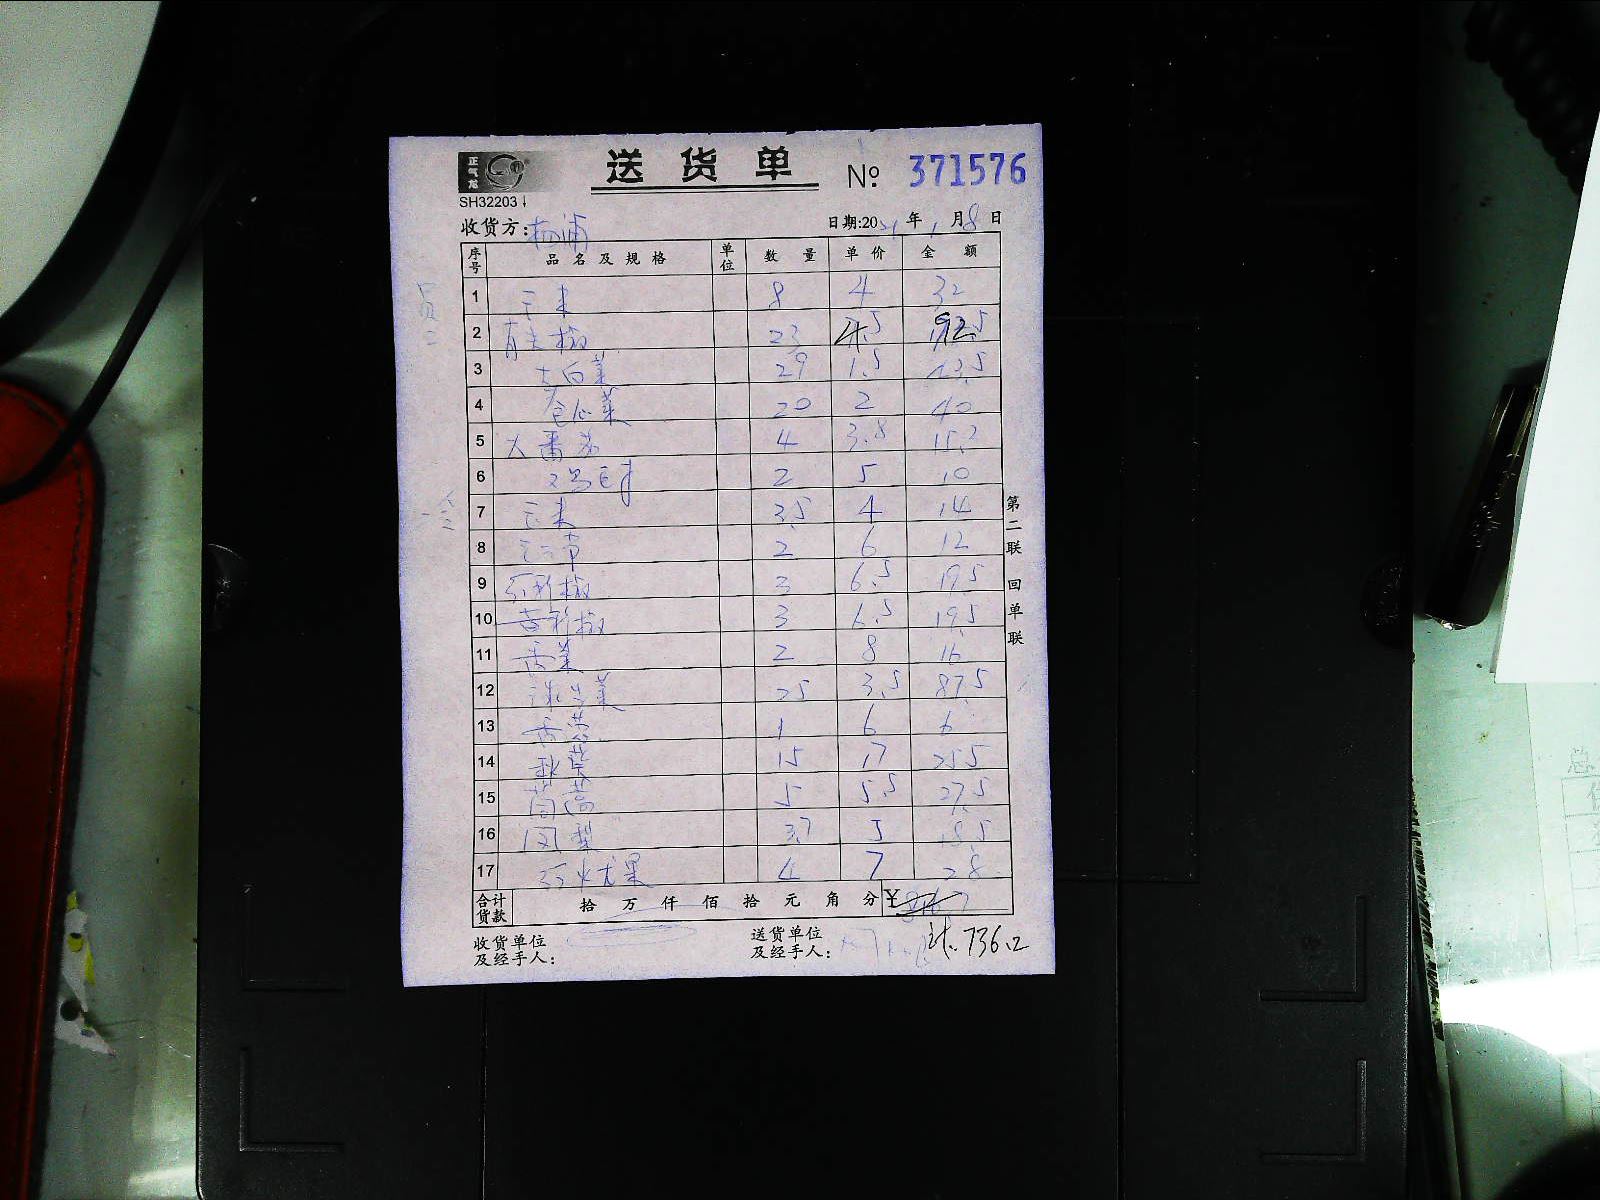 正气龙
送货单 № 371576
SH32203
收货方: 杨浦 日期:2021年1月8日
序号 品名及规格 单位 数量 单价 金额
1 玉米 8 4 32
2 青尖椒 23 4 92
3 大白菜 29 1.5 43.5
4 包心菜 20 2 40
5 大番茄 4 3.8 15.2
6 2 5 10
7 玉米 3.5 4 14
8 2 6 12
9 红彩椒 3 6.5 19.5
10 黄彩椒 3 6.5 19.5
11 香菜 2 8 16
12 球生菜 25 3.5 87.5
13 香葱 1 6 6
14 秋葵 15 17 255
15 茼蒿 5 5.5 27.5
16 凤梨 3.7 5 18.5
17 红火龙果 4 7 28
合计货款 拾 万 仟 佰 拾 元 角 分 ¥
收货单位及经手人:
送货单位及经手人:
计.736.2
第二联 回单联